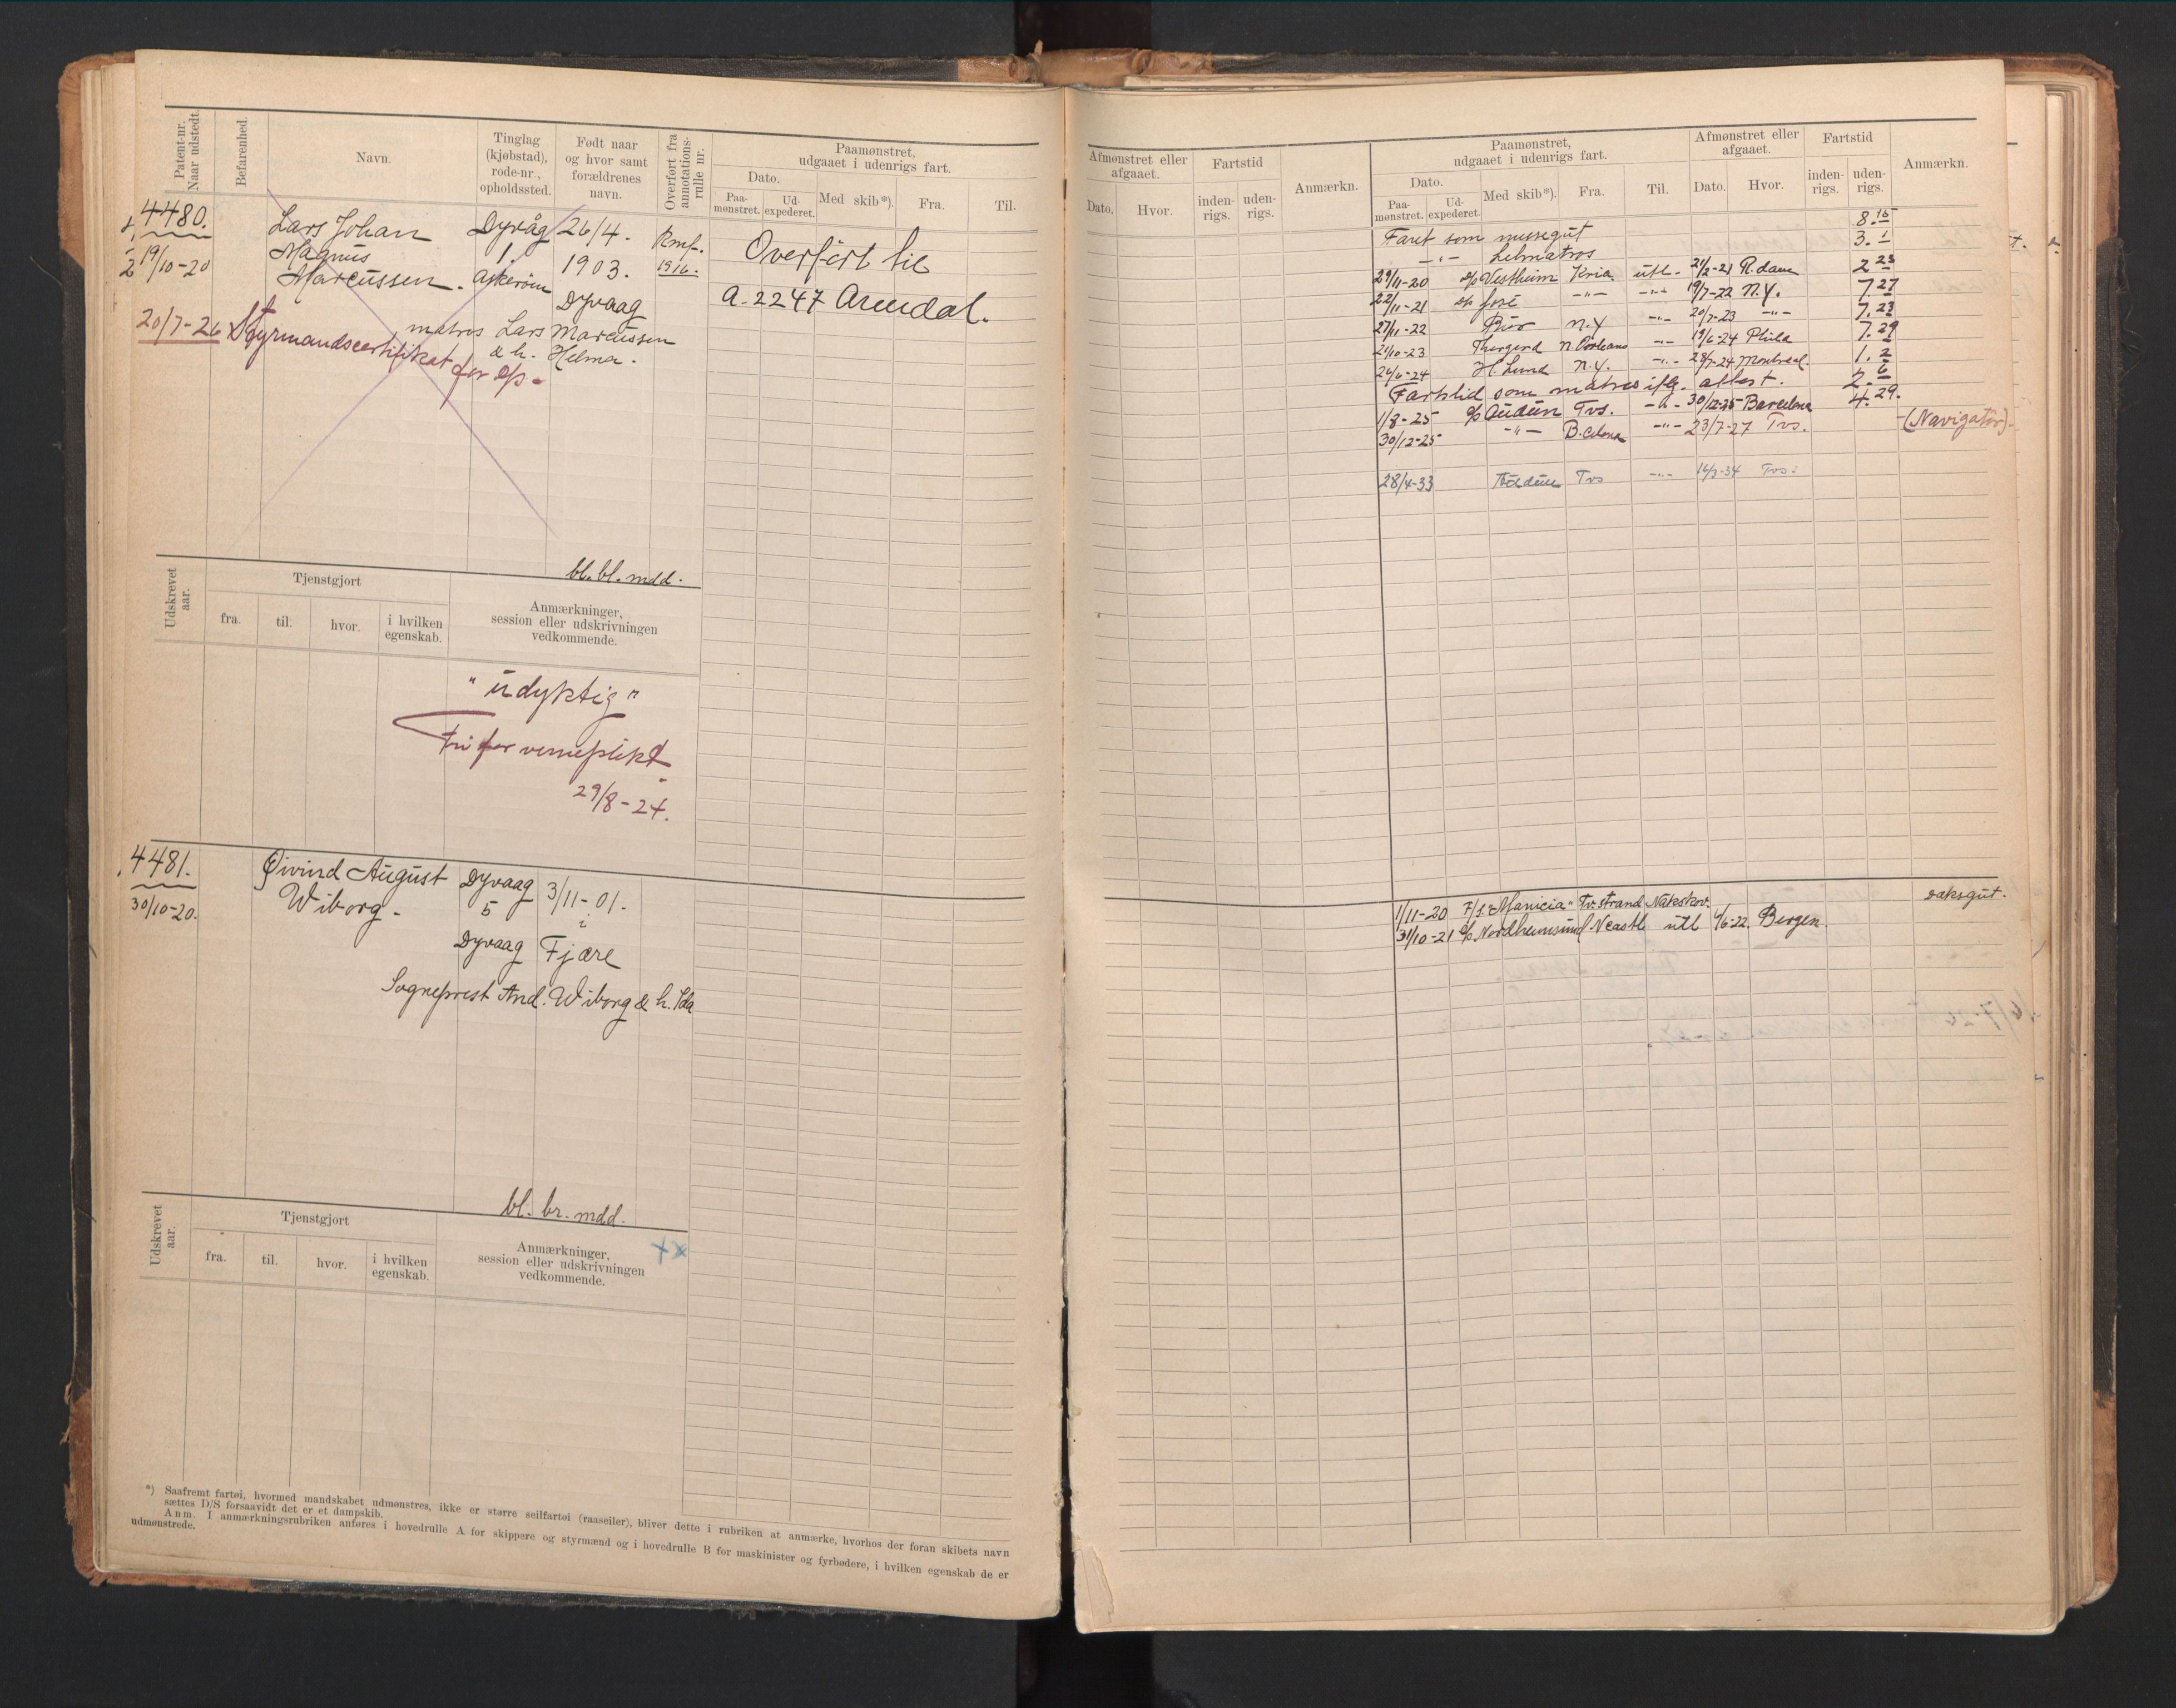 Patent-nr. Naar udstedt.
Befarenhed.
Navn.
Tinglag (kjøbstad), rode-nr., opholdssted.
Født naar og hvor samt forældrenes navn.
Overført fra annotations-rulle nr.
Paamønstret, udgaaet i udenrigs fart.
Dato.
Paa-mønstret.
Ud-expederet.
Med skib*).
Fra.
Til.
4480.
19/10-20
Lars Johan
Magnus
Marcussen.
Dyvåg
1
Askerøen
26/4.
1903.
Dyvaag
Rmf.
1916.
Overført til
A. 2247 Arendal.
20/7-26 Styrmandscertifikat for d/s
matros Lars Marcussen
& h. Helma.
bl. bl. mdd.
Udskrevet aar.
Tjenstgjort
fra.
til.
hvor.
i hvilken egenskab.
Anmærkninger, session eller udskrivningen vedkommende.
"udyktig"
Fri for verneplikt
29/8-24.
4481.
30/10-20.
Øivind August
Wiborg.
Dyvaag
5
Dyvaag
3/11-01.
i
Fjære
Sogneprest And. Wiborg & h. Ida
bl. br. mdd.
Udskrevet aar.
Tjenstgjort
fra.
til.
hvor.
i hvilken egenskab.
Anmærkninger, session eller udskrivningen vedkommende.
*) Saafremt fartøi, hvormed mandskabet udmønstres, ikke er større seilfartøi (raaseiler), bliver dette i rubriken at anmærke, hvorhos der foran skibets navn
sættes D/S forsaavidt det er et dampskib.
Anm. I anmærkningsrubriken anføres i hovedrulle A for skippere og styrmænd og i hovedrulle B for maskinister og fyrbødere, i hvilken egenskab de er
udmønstrede.
Afmønstret eller afgaaet.
Dato.
Hvor.
Fartstid
inden-rigs.
uden-rigs.
Anmærkn.
Paamønstret, udgaaet i udenrigs fart.
Dato.
Paa-mønstret.
Ud-expederet.
Med skib*).
Fra.
Til.
Afmønstret eller afgaaet.
Dato.
Hvor.
Fartstid
inden-rigs.
uden-rigs.
Anmærkn.
Faret som messegut 8.15
-"- Letmatros 3.1
29/11-20 d/s Vestheim Kria. utl. 21/2-21 R.dam 2 23
22/11-21 d/s -"- -"- 19/7-22 N.Y. 7.27
27/11-22 N.Y -"- 20/7-23 -"- 7.23
21/10-23 Thorgerd N. Orleans -"- 19/6-24 Phila 7.29
26/6-24 H. Lund N.Y. -"- 28/7-24 Montreal. 1.2
Fartstid som matros iflg. attest. 2.6
1/8-25 d/s Audun Tvs. -"- 30/12-25 Barcelona 4.29.
30/12-25 -"- B.celona -"- 23/7-27 Tvs. (Navigatør)
28/4-33 Audun Tvs -"- 16/3-34 Tvs.
1/11-20 "Manicia" Tv.strand Nakskov. daksgut.
31/10-21 d/s Nordheimsund Ncastle utl 4/6-22. Bergen.